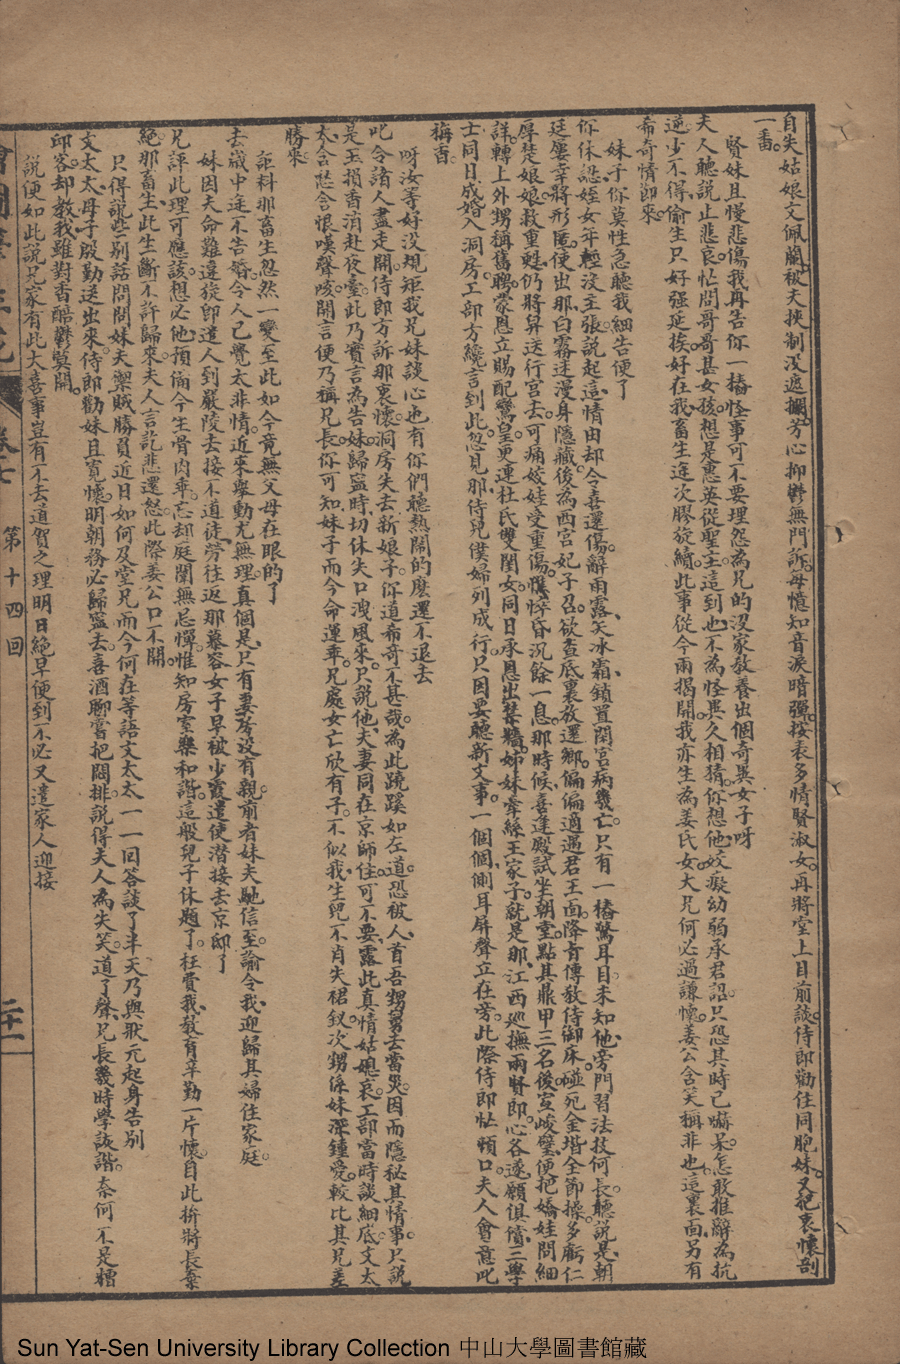 自失姑娘文佩蘭被夫挾制没遮攔芳心抑鬱無門訴每憶知音淚暗彈按表多情賢淑女再將堂上目前談侍郎勸住同胞妹又把哀懷剖
一番
賢妹且慢悲傷我再告你一樁怪事可不要理怨為兄的没家教養出個奇異女子呀
夫人聽說止悲哀忙問哥哥甚女孩想是惠英從聖主這到也不為怪異久相猜你想他姣癡幼弱承君詔只恐其時已嚇呆怎敢推辭為抗
逆少不得偷生只好强延挨好在我畜生连次膠旋續此事從今兩揭開我亦生為姜氏女大兄何必過謙懷姜公含笑稱非也這裏面另有
希奇情節來
妹子你莫性急聽我細告便了
你休認姪女年輕没主張說起這情由却令喜還傷辭雨露天冰霜鎖置閑宮病幾亡只有一樁驚耳目未知他旁門習法技何長聽說是朝
廷屢幸將形匿使出那白霧迷漫身隱藏後為西宮妃子召欲查底裏放還鄉偏偏適遇君王面降旨傳教侍御床碰死金堦全節操多虧仁
厚楚娘娘救重甦仍將昇送行宮去可痛姣娃受重傷憔悴昏沉餘一息那時候喜逢殿試坐朝堂點其鼎甲三名後宣峻璧便把嬌娃問細
詳轉上外甥稱舊聘蒙恩立賜配鸞皇更連杜氏雙閨女同日承恩出禁牆姊妹牽絲王家子就是那江西巡撫兩賢郎心各遂願俱償三學
士同日成婚入洞房工部方纔言到此忽見那侍兒僕婦列成行只因要聽新文事一個個側耳屏聲立在旁此際侍郎忙頓口夫人會意叱
梅香
呀汝等好没規矩我兄妹談心也有你們聽熱鬧的麽還不退去
叱令諸人盡走開侍郎方訴那衷懷洞房失去新娘子你道希奇不甚哉為此蹺蹊如左道恐被人首吾甥舅去當災因而隱秘其情事只說
是玉損香消赴夜臺此乃實言為告妹歸寧時切休失口洩風來只說他夫妻同在京師住可不要露此真情姑媳哀工部當時談細底文太
太含愁含恨嘆聲咳開言便乃稱兄長你可知妹子而今命運乖兄處女亡欣有子不似我生兒不肖失裙釵次甥係妹深鍾愛較比其兄差
勝來
詎料那畜生忽然一變至此如今竟無父母在眼的了
去歲中连不告婚令人已覺太非情近來舉動尤無理真個是只有妻房没有親前者妹夫馳信至諭令我迎歸其婦住家庭
妹因夫命難違旋即遣人到嚴陵去接不道徒勞往返那慕容女子早被少霞遣使潛接去京邸了
兄評此理可應該想必他預備今生骨肉乖忘却庭闈無忌憚惟知房室樂和諧這般兒子休題了枉費我教育辛勤一片懷自此拚將長棄
絕那畜生此生斷不許歸來夫人言訖悲還怒此際姜公口不開
只得說些別話問問妹夫禦賊勝負近日如何及堂兄而今何在等語文太太一一回答談了半天乃與狀元起身告別
文太太母子殷勤送出來侍郎勸妹且寬懷明朝務必歸寧去喜酒聊嘗把悶排說得夫人為失笑道了聲兄長幾時學詼諧奈何不是糟
邱客却教我雖對香醅鬱莫開
說便如此說兄家有此大喜事豈有不去道賀之理明日絕早便到不必又遣家人迎接
卷七 第十四回
二十一
Sun Yat-Sen University Library Collection 中山大學圖書館藏